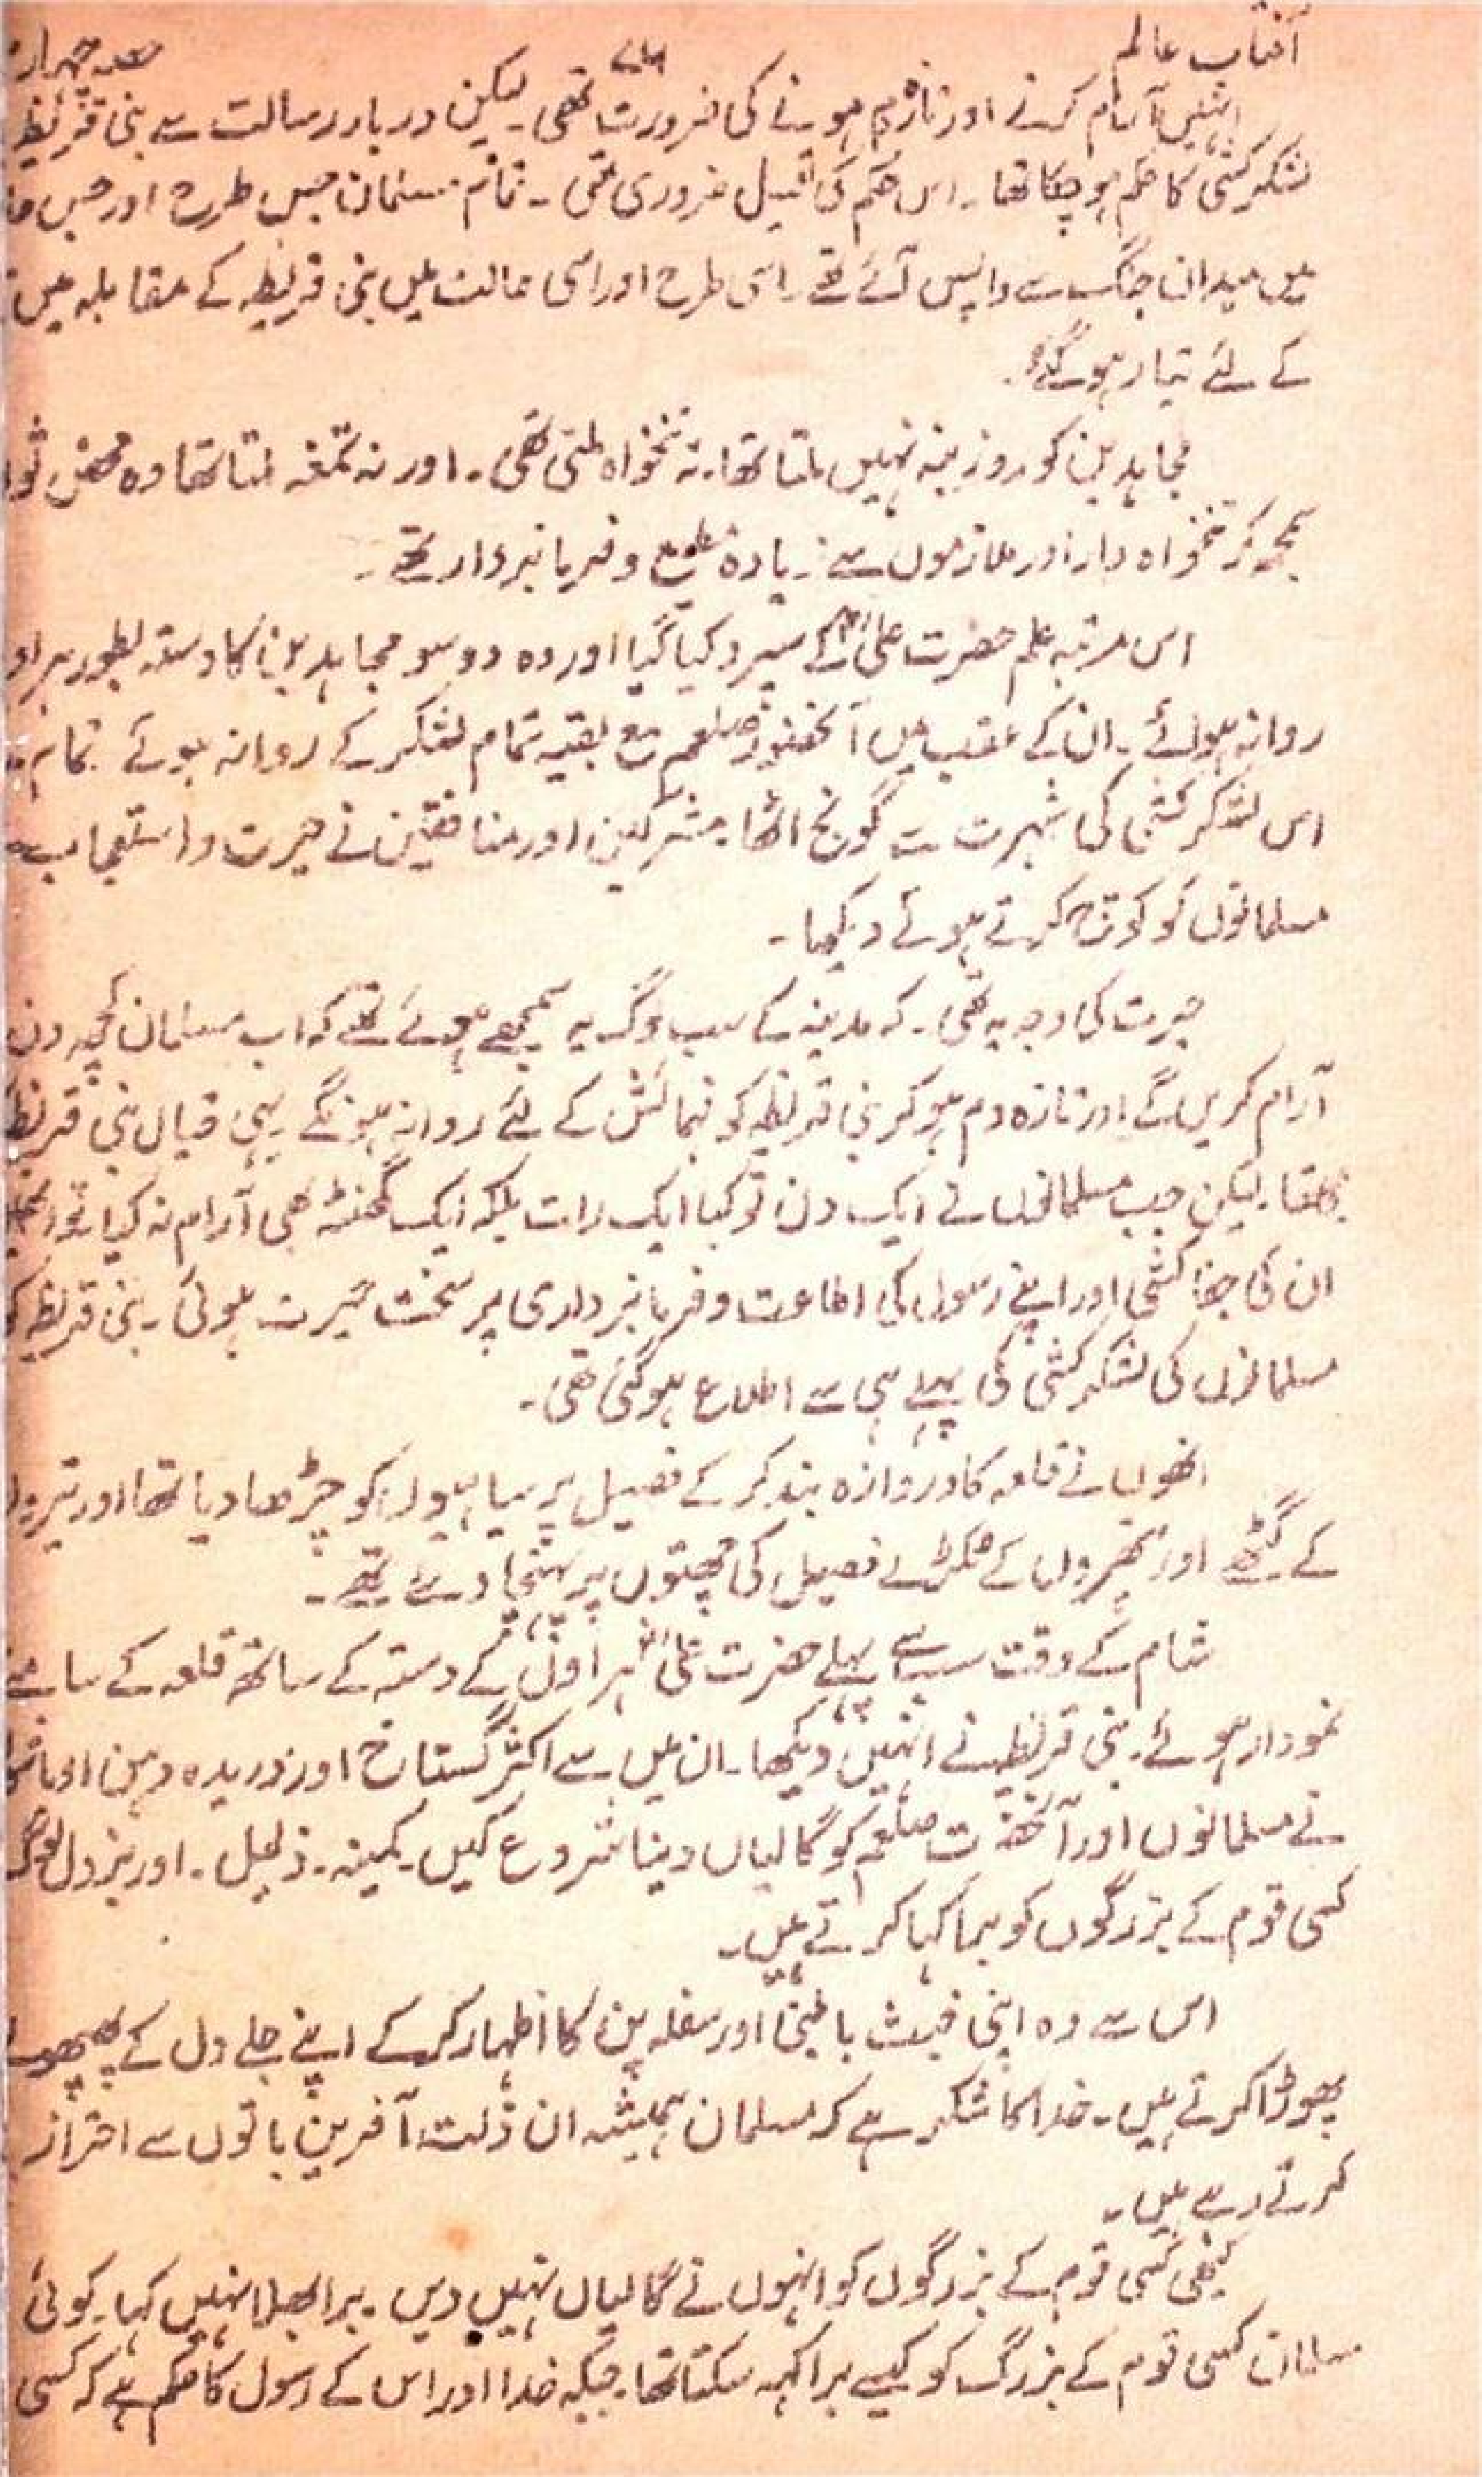 آفتاب عالم
حصہ چہارم
انہیں آرام کرنے اور تازہ دم ہونے کی ضرورت تھی۔ لیکن دربار رسالت سے بنی قریظہ
لشکر کشی کا حکم ہو چکا تھا۔ اس حکم کی تعمیل ضروری تھی۔ تمام مسلمان جس طرح اور جس
میں میدان جنگ سے واپس آئے تھے۔ اسی طرح اور اسی حالت میں بنی قریظہ کے مقابلہ میں
کے لئے تیار ہو گئے۔
مجاہدین کو روزینہ نہیں ملتا تھا۔ نہ تنخواہ ملتی تھی۔ اور نہ تمغہ ملتا تھا وہ محض
سمجھ کر تنخواہ دار اور ملازموں سے زیادہ مطیع و فرمانبردار تھے۔
اس مرتبہ علم حضرت علیؓ کے سپرد کیا گیا اور وہ دو سو مجاہدین کا دستہ بطور
روانہ ہوئے۔ ان کے عقب میں آنحضور صلعم مع بقیہ تمام لشکر کے روانہ ہوئے تمام
اس لشکر کشی کی شہرت سے گونج اٹھا۔ مشرکین اور منافقین نے حیرت و استعجاب
مسلمانوں کو کوچ کرتے ہوئے دیکھا۔
حیرت کی وجہ یہ تھی۔ کہ مدینہ کے سب لوگ یہ سمجھے ہوئے تھے کہ اب مسلمان کچھ دن
آرام کریں گے اور تازہ دم ہو کر بنی قریظہ کو فہمائش کے لئے روانہ ہونگے یہی خیال بنی قریظہ
تھا۔ لیکن جب مسلمانوں نے ایک دن تو کیا ایک رات بلکہ ایک گھنٹہ بھی آرام نہ کیا تو
ان کی جفا کشی اور اپنے رسول کی اطاعت و فرمانبرداری پر سخت حیرت ہوئی۔ بنی قریظہ کو
مسلمانوں کی لشکر کشی کی پہلے ہی سے اطلاع ہو گئی تھی۔
انھوں نے قلعہ کا دروازہ بند کر کے فصیل پر سپاہیوں کو چڑھا دیا تھا اور تیروں
کے گٹھے اور پتھروں کے ٹکڑے فصیل کی چھتوں پر پہنچا دئے تھے۔
شام کے وقت سب سے پہلے حضرت علیؓ ہراول کے دستہ کے ساتھ قلعہ کے سامنے
نمودار ہوئے۔ بنی قریظہ نے انہیں دیکھا۔ ان میں سے اکثر گستاخ اور دریدہ دہن
نے مسلمانوں اور آنحضرت صلعم کو گالیاں دینا شروع کیں۔ کمینہ۔ ذلیل۔ اور بزدل لوگ
کسی قوم کے بزرگوں کو برا کہا کرتے ہیں۔
اس سے وہ اپنی خبث باطنی اور سفلہ پن کا اظہار کر کے اپنے جلے دل کے پھپھولے
پھوڑا کرتے ہیں۔ خدا کا شکر ہے کہ مسلمان ہمیشہ ان ذلت آفرین باتوں سے احتراز
کرتے رہے ہیں۔
کبھی کسی قوم کے بزرگوں کو انہوں نے گالیاں نہیں دیں۔ برا بھلا نہیں کہا۔ کوئی
مسلمان کسی قوم کے بزرگ کو کیسے برا کہہ سکتا تھا۔ جبکہ خدا اور اس کے رسول کا حکم ہے کہ کسی